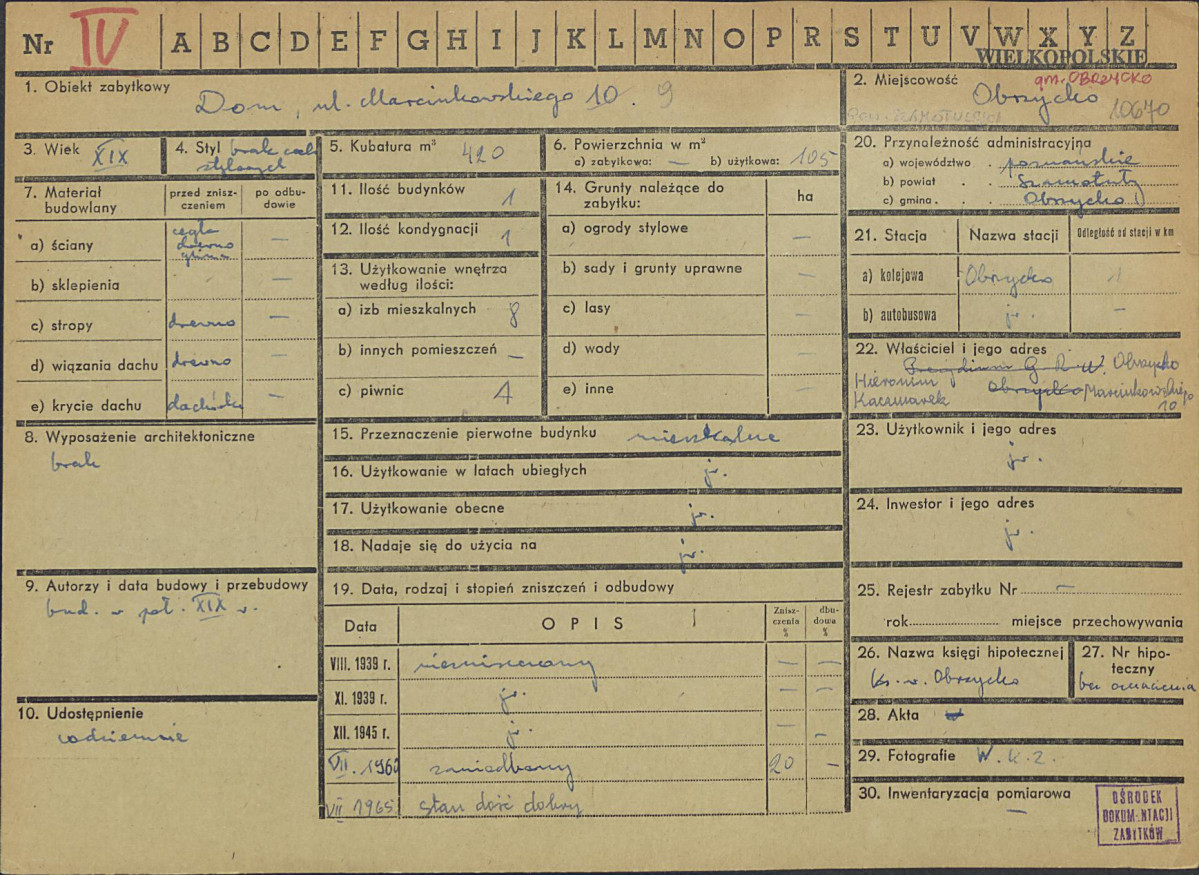 Nr IV A B C D E F G H I J K L M N O P R S T U V W X Y Z
WIELKOPOLSKIE
1. Obiekt zabytkowy
Dom, ul. Marcinkowskiego 10. 9
2. Miejscowość
gm. OBRZYCKO
Obrzycko
10670
3. Wiek XIX
4. Styl brak cech
stylowych
5. Kubatura m³ 420
6. Powierzchnia w m²
a) zabytkowa: — b) użytkowa: 105
7. Materiał budowlany
przed zniszczeniem
po odbudowie
a) ściany
cegła
drewno
glina
—
b) sklepienia
c) stropy drewno —
d) wiązania dachu drewno —
e) krycie dachu dachówka —
8. Wyposażenie architektoniczne
brak
9. Autorzy i data budowy i przebudowy
bud. w poł. XIX w.
10. Udostępnienie
codziennie
11. Ilość budynków 1
12. Ilość kondygnacji 1
13. Użytkowanie wnętrza
według ilości:
a) izb mieszkalnych 8
b) innych pomieszczeń —
c) piwnic 1
14. Grunty należące do
zabytku:
ha
a) ogrody stylowe —
b) sady i grunty uprawne —
c) lasy —
d) wody —
e) inne —
15. Przeznaczenie pierwotne budynku mieszkalne
16. Użytkowanie w latach ubiegłych jw.
17. Użytkowanie obecne jw.
18. Nadaje się do użycia na jw.
19. Data, rodzaj i stopień zniszczeń i odbudowy
Data
OPIS
Zniszczenia %
dbudowa %
VIII. 1939 r. niezniszczony — —
XI. 1939 r. jw. — —
XII. 1945 r. jw. — —
VII. 1960 zaniedbany 20 —
VII 1965 stan dość dobry
20. Przynależność administracyjna
a) województwo . poznańskie
b) powiat . . Szamotuły
c) gmina . . Obrzycko
21. Stacja
Nazwa stacji
Odległość od stacji w km
a) kolejowa Obrzycko 1
b) autobusowa jw. —
22. Właściciel i jego adres
Obrzycko
Hieronim
Obrzycko Marcinkowskiego
Kaczmarek
10
23. Użytkownik i jego adres
jw.
24. Inwestor i jego adres
jw.
25. Rejestr zabytku Nr —
rok miejsce przechowywania
26. Nazwa księgi hipotecznej
ks. w. Obrzycko
27. Nr hipoteczny
bez oznaczenia
28. Akta
29. Fotografie W.K.Z.
30. Inwentaryzacja pomiarowa
—
OŚRODEK
DOKUMENTACJI
ZABYTKÓW